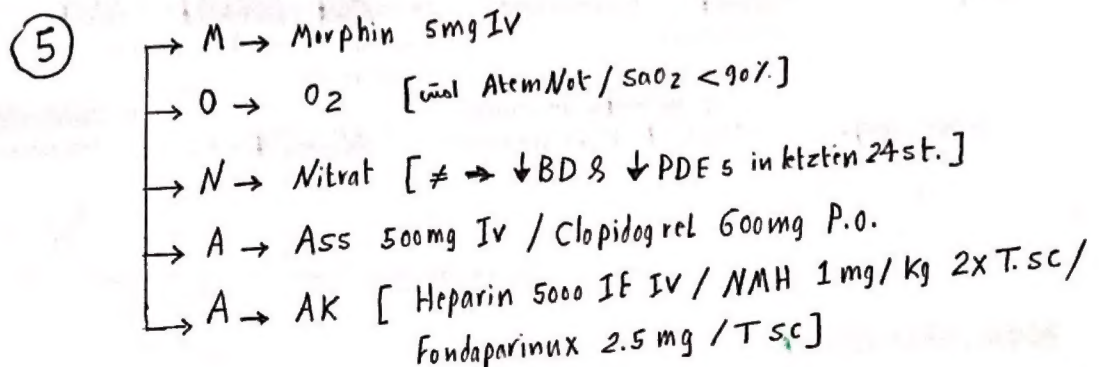 5
→ M → Morphin 5mg IV
→ O → O2 [ AtemNot / SaO2 < 90%]
→ N → Nitrat [ ≠ → ↓BD & ↓ PDE 5 in letzten 24st. ]
→ A → Ass 500mg IV / Clopidogrel 600mg P.O.
→ A → AK [ Heparin 5000 IE IV / NMH 1mg/Kg 2x T. sc /
Fondaparinux 2.5 mg / T sc]